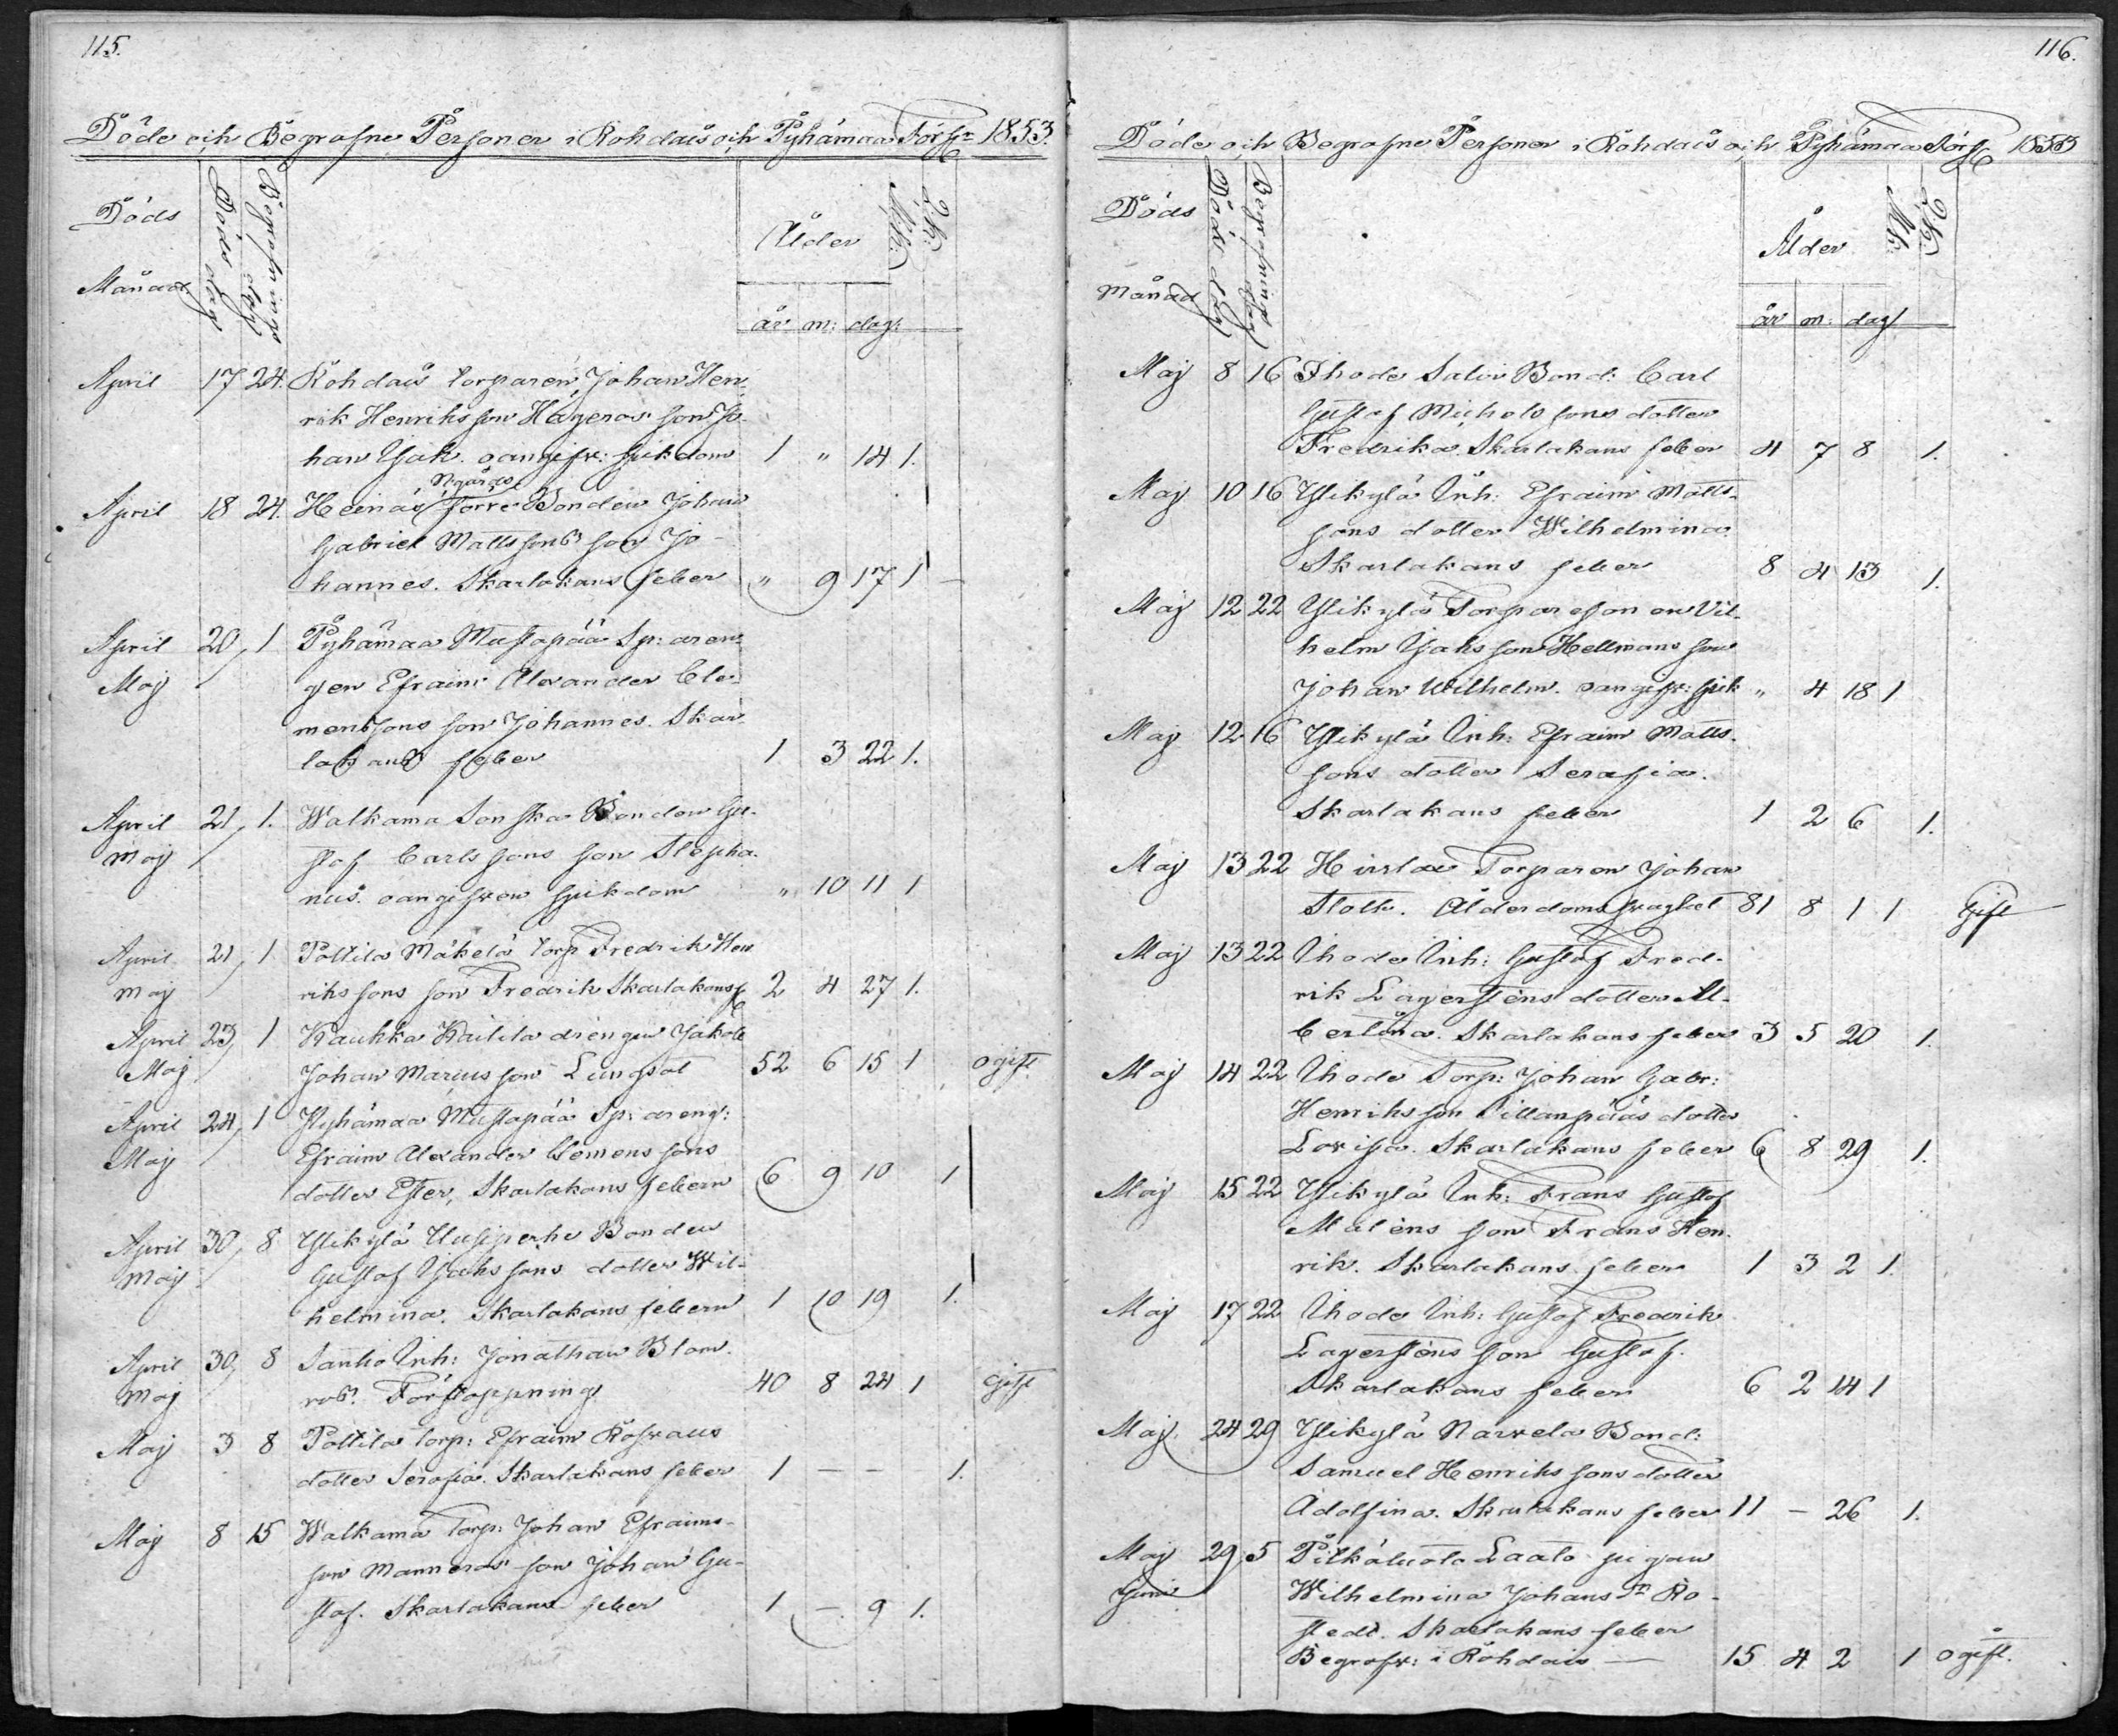 115.
Döde och Begrafne Personer i Rohdais och Pyhämaa Förs:r 1853.
Döds Månad
Döds dag
Begrafnings dag
Ålder
Mk:
Qk:
år m: dag:
April 17 24. Rohdais torparen Johan Hen-
rik Henriksson Hageros son Jo-
han Isak. oangifv: sjukdom 1 " 14 1.
Nigårds
April 18 24. Heinäs förre Bonden Johan
Gabriel Mattssons son Jo-
hannes. Skarlakans feber " 9 17 1
April 20, 1 Pyhämaa Mustapää Sp: aren-
Maj gen Efraim Alexander Cle-
mentsons son Johannes. Skar-
lakans feber 1 3 22 1.
April 21, 1. Walkama Sonska Bonden Gu-
Maj staf Carlssons son Stepha-
nus. oangifven sjukdom " 10 11 1
April 21, 1 Pottila Mäkelä torp Fredrik Hen
Maj rikssons son Fredrik Skarlakansf 2 4 27 1.
April 23, 1 Kaukka Kaitila drengen Jakob
Maj Johan Mariusson Lungsot 52 6 15 1 ogift
April 24, 1 Pyhämaa Mustapää Sp: areng:
Maj Efraim Alexander Clemenssons
dotter Ester, Skarlakans febern 6 9 10 1
April 30, 8 Ylikylä Uusiperhe Bonden
Maj Gustaf Isakssons dotter Wil-
helmina. Skarlakans febern 1 10 19 1.
April 30, 8 Sanko Inh: Jonathan Blom-
Maj ros. Förstoppning 40 8 24 1 Gift
Maj 3 8 Pottila torp: Efraim Rosvaus
dotter Serafia. Skarlakans feber 1 — — 1.
Maj 8 15 Walkama torp: Johan Efraims-
son Manneros son Johan Gu-
staf. Skarlakans feber 1 — 9 1.
116.
Döde och Begrafne Personer i Rohdais och Pyhämaa Förs: 1853
Döds Månad
Döds dag
Begrafnings dag
Ålder
Mk:
Qk:
år m: dag
Maj 8 16 Ihode Salvi Bond: Carl
Gustaf Michelssons dotter
Fredrika. Skarlakans feber 4 7 8 1.
Maj 10 16 Ylikylä Inh: Efraim Matts-
sons dotter Wilhelmina
Skarlakans feber 8 4 13 1.
Maj 12 22 Ylikylä Torparesonen Vil-
helm Isaksson Hellmans son
Johan Wilhelm. oangifv: sjuk " 4 18 1
Maj 12 16 Ylikylä Inh: Efraim Matts-
sons dotter Serafia.
Skarlakans feber 1 2 6 1.
Maj 13 22 Hirslax Torparen Johan
Stolt. Ålderdomssvaghet 81 8 1 1 Gift
Maj 13 22 Ihode Inh: Gustaf Fred-
rik Lagersténs dotter Al-
bertina. Skarlakans feber 3 5 20 1.
Maj 14 22 Ihode Torp: Johan Gabr:
Henriksson Sillanpääs dotter
Lovisa. Skarlakans feber 6 8 29 1.
Maj 15 22 Ylikylä Inh: Frans Gustaf
Maléns son Frans Hen-
rik. Skarlakans feber 1 3 2 1.
Maj 17 22 Ihode Inh: Gustaf Fredrik
Lagersténs son Gustaf.
Skarlakans feber 6 2 14 1
Maj 24 29 Ylikylä Narvela Bond:
Samuel Henrikssons dotter
Adolfina. Skarlakans feber 11 — 26 1.
Maj 29, 5 Pitkäluoto Laato pigan
Juni Wilhelmina Johans dr Ro-
stedt. Skarlakans feber
Begrafv: i Rohdais — 15 4 2 1 ogift.